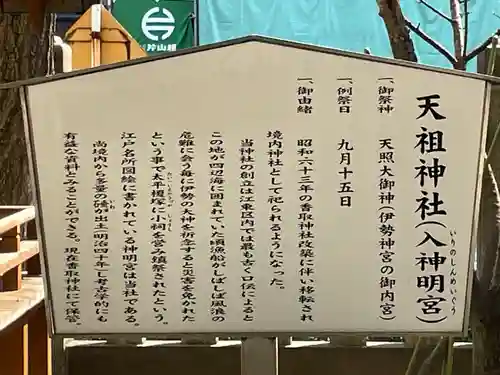 天祖神社(入神明宮)
いりのしんめいぐう
一、御祭神 天照大御神(伊勢神宮の御内宮)
一、例祭日 九月十五日
一、御由緒 昭和六十三年の香取神社改築に伴い移転され
境内神社として祀られるようになった。
当神社の創立は江東区内では最も古く口伝によると
この地が四辺海に囲まれていた頃漁船がしばしば風浪の
危難に会う毎に伊勢の大神を祈念すると災害を免かれた
という事で太平榎塚に小祠を営み鎮祭されたという。
江戸名所図絵に書かれている神明宮は当社である。
尚境内から多量の錘が出土明治四十年し考古学的にも
有益な資料とみることができる。現在香取神社にて保管。